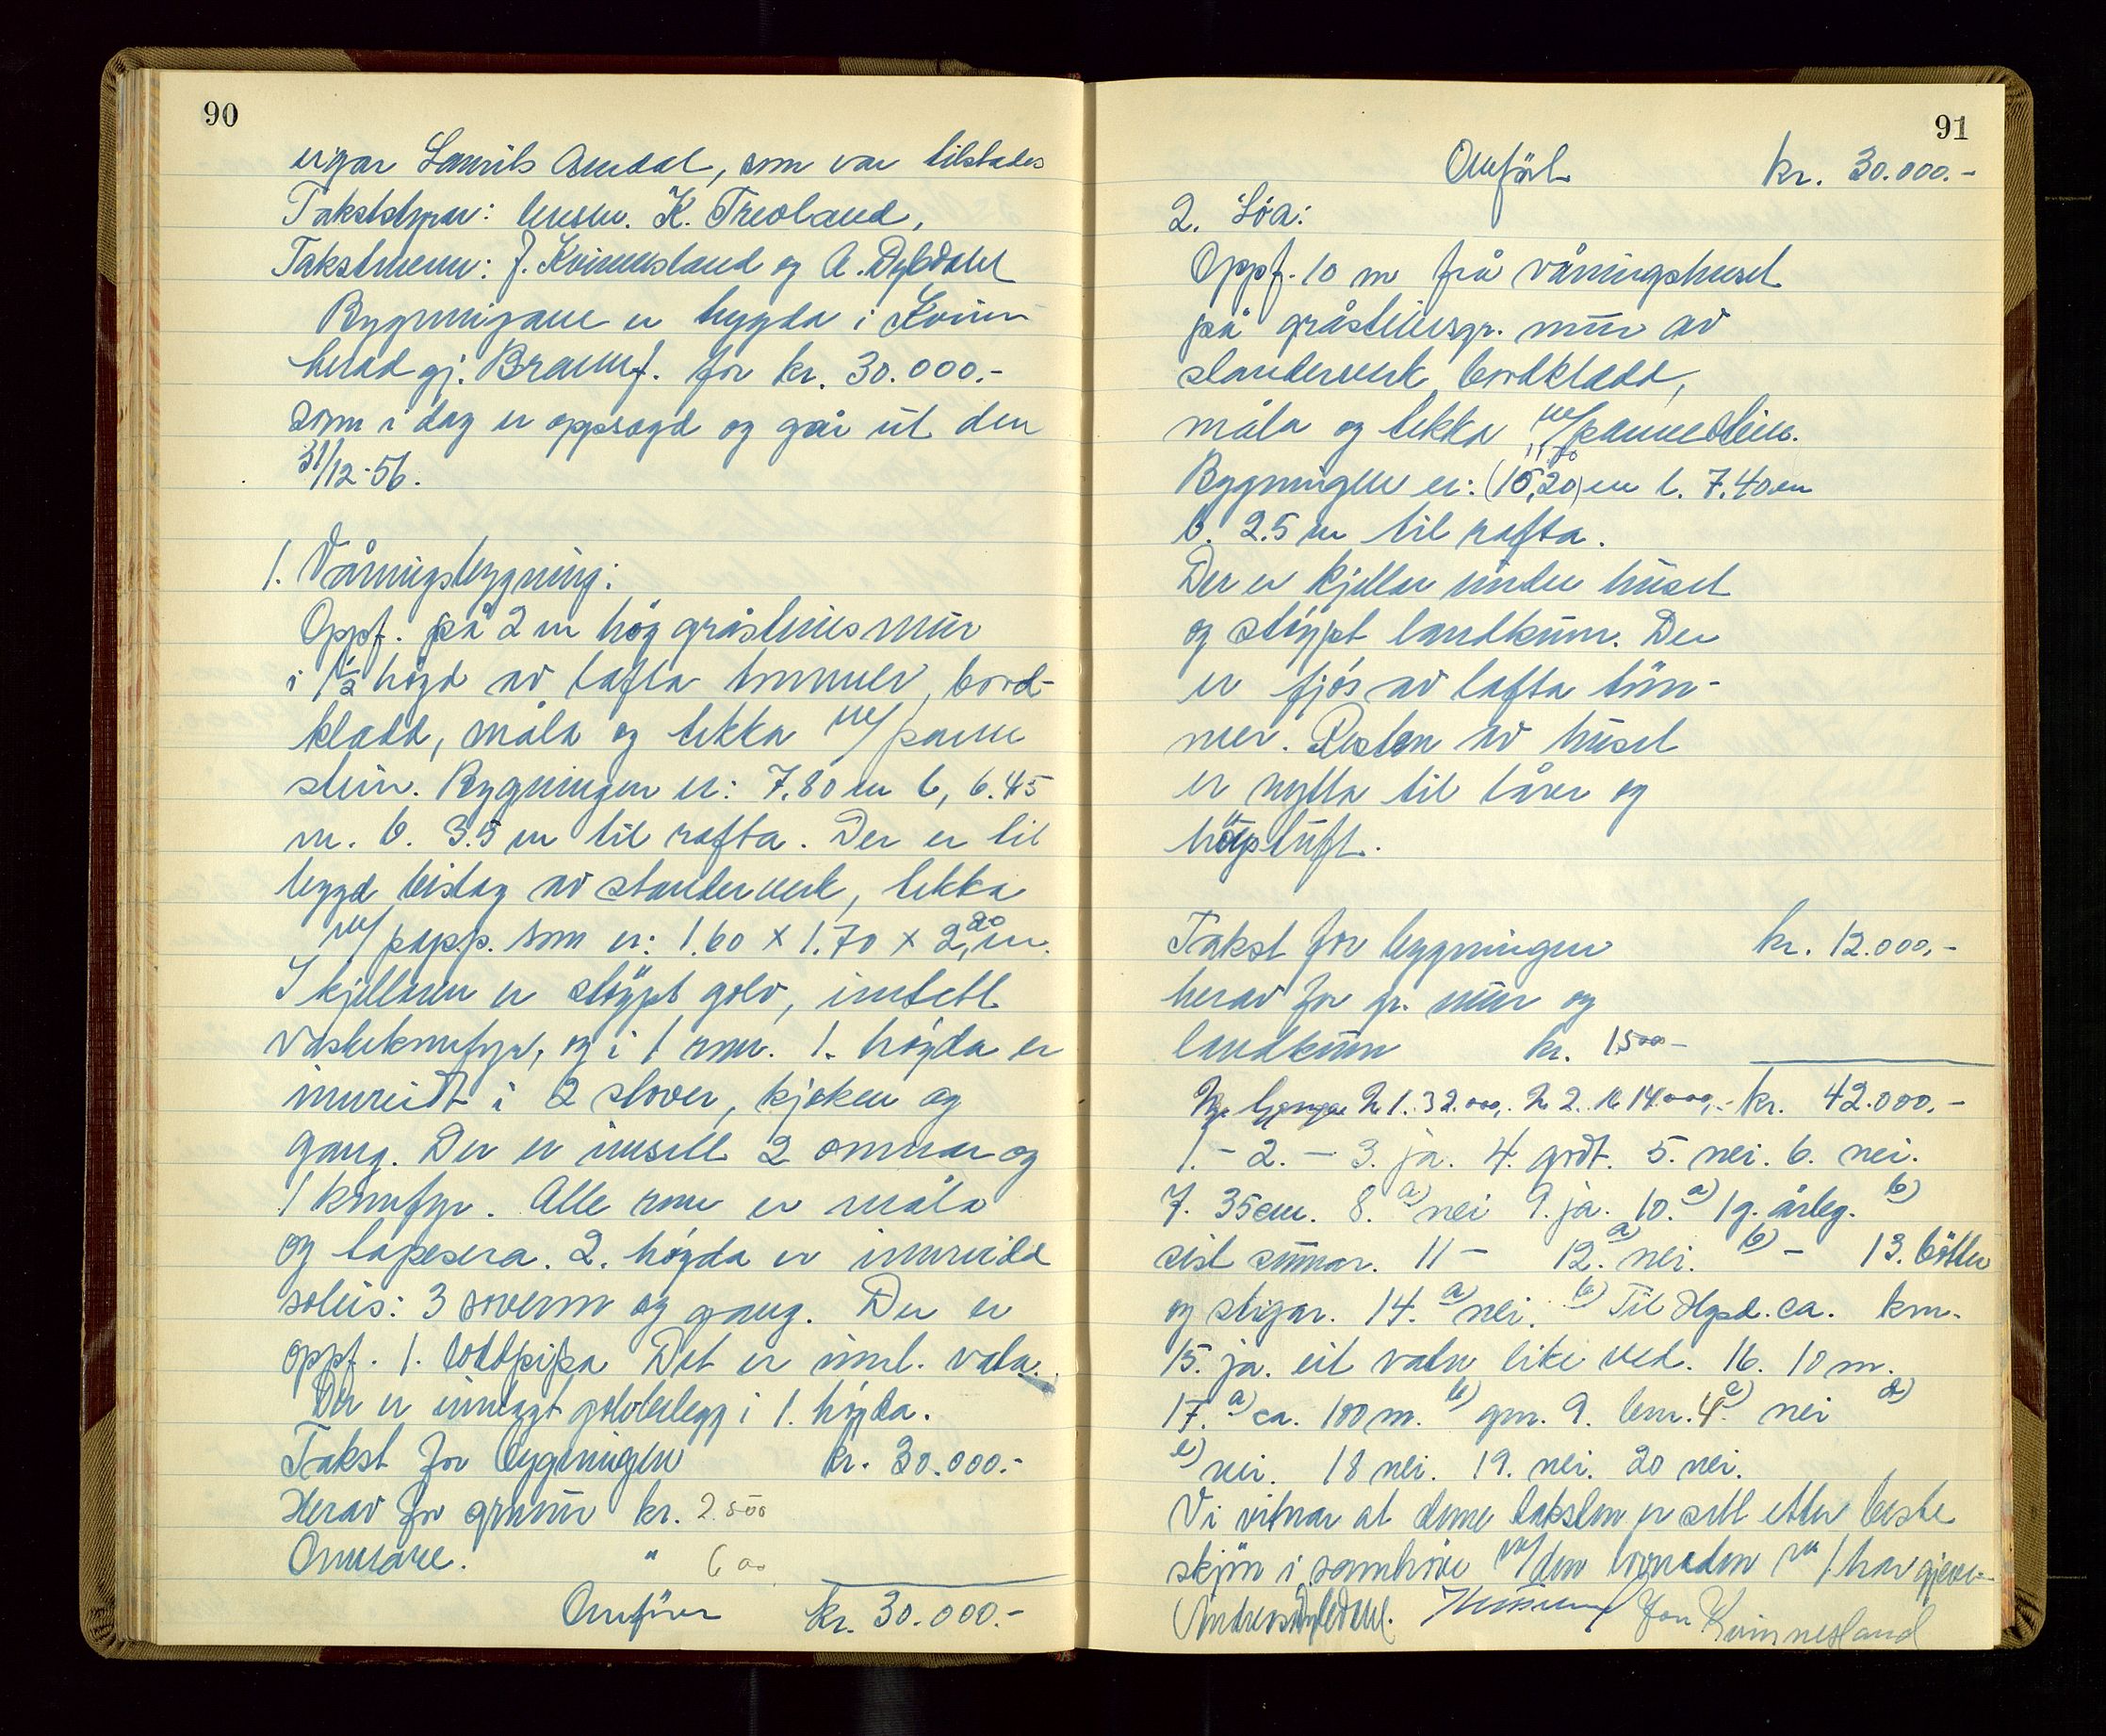 90
eigar Laurits Amdal, som var tilstades
Takststyrar: lensm. K. Treoland,
Takstmenn: J. Kvinnesland og A. Dybdahl
Bygningane er trygda i Kvinn
herad gj. Brannf. for kr. 30.000.-
som i dag er oppsagd og går ut den
31/12-56.
1. Våningsbygning:
Oppf. på 2 m høg gråsteinsmur
i 1½ høgd av lafta tømmer, bord-
kledd, måla og tekka m/panne
stein. Bygningen er: 7.80 m l, 6.45
m. b. 3.5 m til rafta. Der er til
bygd bislag av standerverk, tekka
m/papp. som er: 1.60 x 1.70 x 2,20 m.
I kjellaren er støypt golv, innsett
vaskekomfyr, og i 1 rom. 1. høgda er
innreidt i 2 stover, kjøken og
gang. Der er innsett 2 omnar og
1 komfyr. Alle rom er måla
og tapesera. 2. høgda er innreidd
soleis: 3 soverom og gang. Der er
oppf. 1. loddpipa Det er innl. vatn.
Der er innlagt golvbelegg i 1. høgda.
Takst for bygningen kr. 30.000.-
Herav for grmur kr. 2.500
Omnane. " 600
Omförer kr. 30.000.-
91
Omfört kr. 30.000.-
2. Löa:
Oppf. 10 m frå våningshuset
på gråsteinsgr. mur av
standerverk, bordkledd,
måla og tekka m/pannestein.
Bygningen er: (10,20) m l. 7.40 m
b. 2.5 m til rafta.
Der er kjellar under huset
og støypt landkum. Der
er fjøs av lafta töm-
mer. Resten av huset
er nytta til låve og
høgstuft.
Takst for bygningen kr. 12.000,-
herav for gr. mur og
landkum kr. 1500-
N 1. 32.000,. N 2. 14.000,.- kr. 42.000.-
1. - 2. - 3. ja. 4. godt. 5. nei. 6. nei.
7. 35cm. 8. a) nei 9. ja. 10. a) 1 g. årleg. b)
sist sumar. 11 - 12. a) nei. b) - 13. bötter
og stigar. 14. a) nei. b) Til Hgsd. ca. km.
15. ja. eit vatn like ved. 16. 10 m.
17. a) ca. 100 m. b) gnr. 9. bnr. 4. c) nei d)
e) nei. 18 nei. 19. nei. 20 nei.
Vi vitnar at denne taksten er sett etter beste
skjön i samhöve m/den lovnaden me har gjeve.
Andreas Dybdahl. Jon Kvinnesland